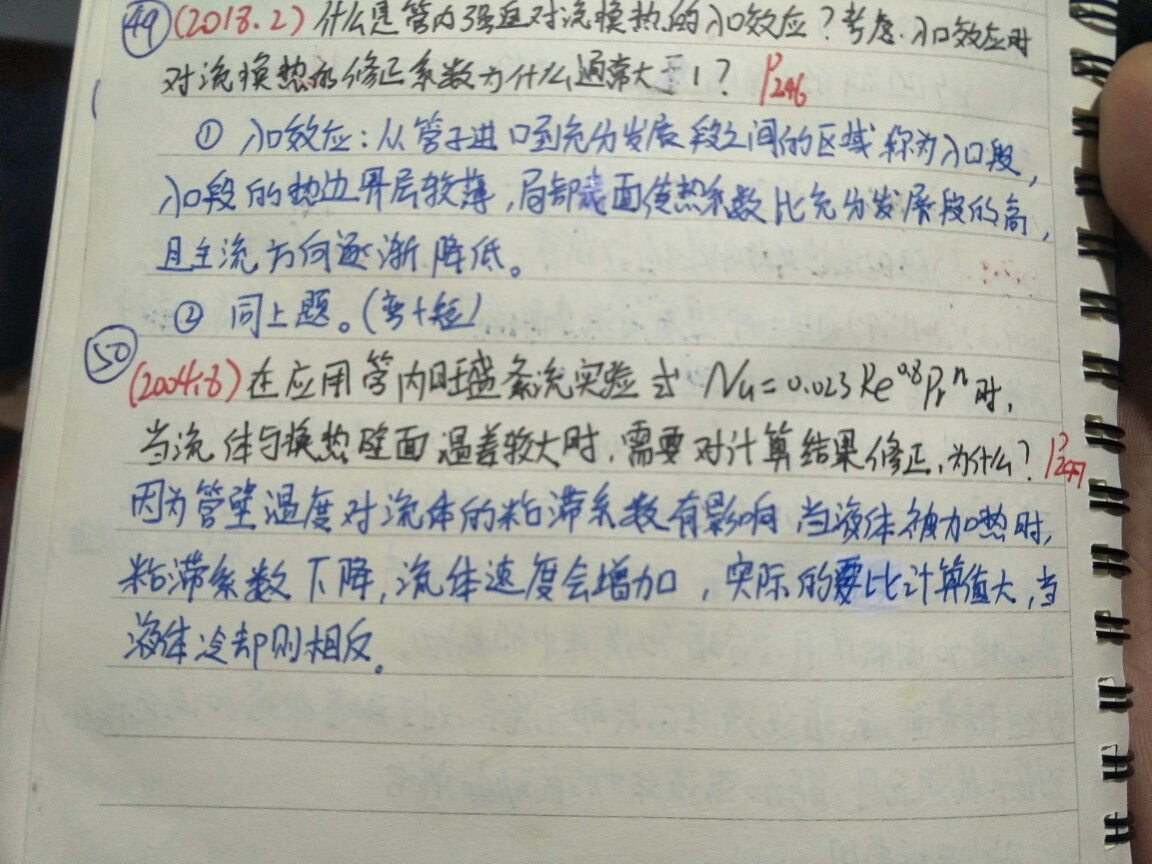 49 (2018.2) 什么是管内强迫对流换热的入口效应？考虑入口效应时
对流换热的修正系数为什么通常大于1？ P246
① 入口效应：从管子进口到充分发展段之间的区域称为入口段，
入口段的热边界层较薄，局部表面传热系数比充分发展段的高，
且主流方向逐渐降低。
② 同上题。(弯+短)
50 (2004.8) 在应用管内旺盛紊流实验式 Nu=0.023Re^0.8Pr^n时，
当流体与换热壁面温差较大时，需要对计算结果修正，为什么？ P247
因为管壁温度对流体的粘滞系数有影响 当液体被加热时，
粘滞系数下降，流体速度会增加，实际的要比计算值大，当
液体冷却则相反。